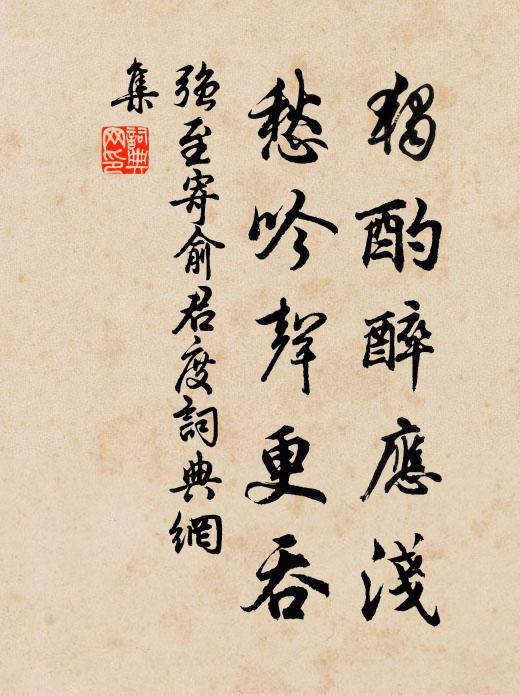 獨酌醉應淺
愁吟聲更吞
強至寄俞君度詞典網
集
詞典
网印